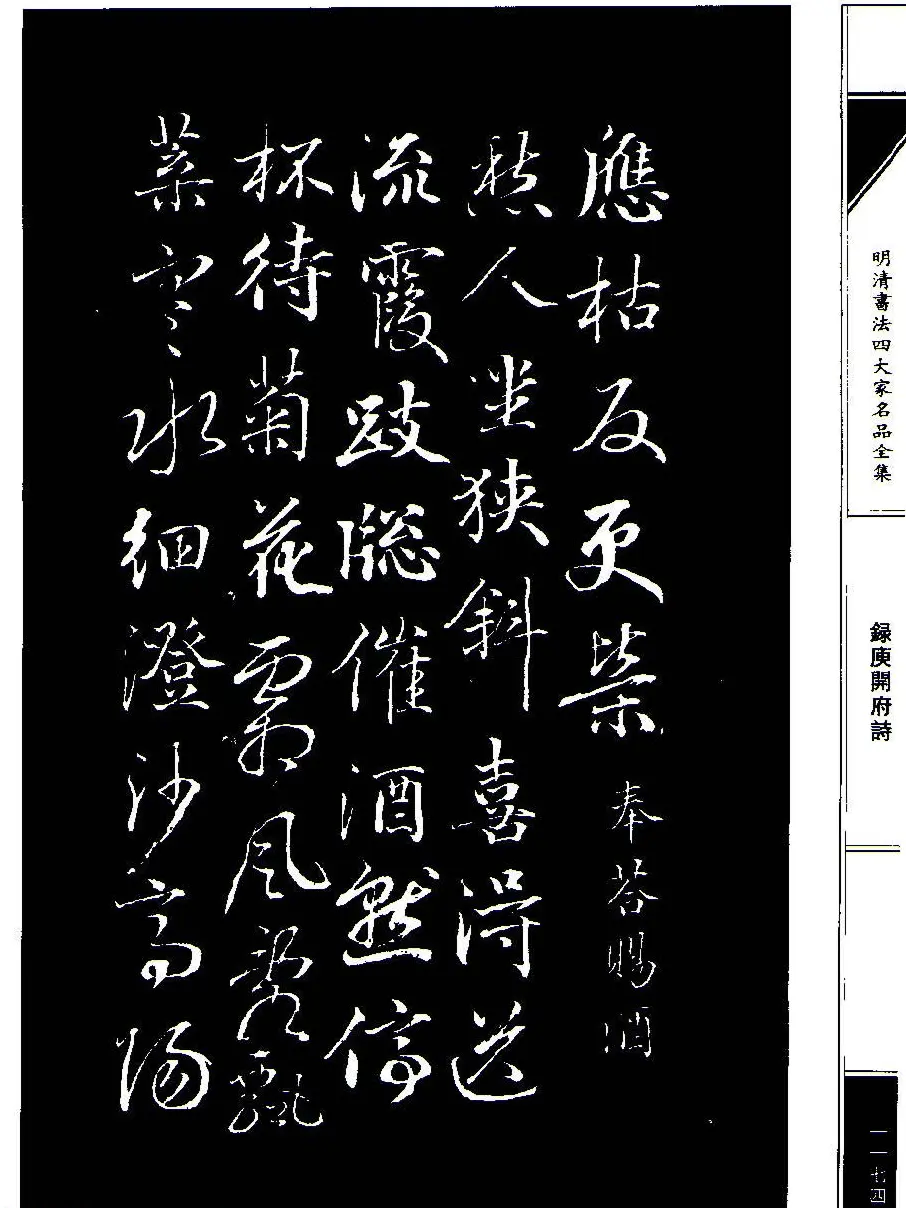 應枯反更榮 奉荅賜酒
愁人坐狹斜喜得送
流霞跂牕催酒熟停
杯待菊花霜風亂飄
葉寒水細澄沙高陽
明清書法四大家名品全集
録庾開府詩
一一七四